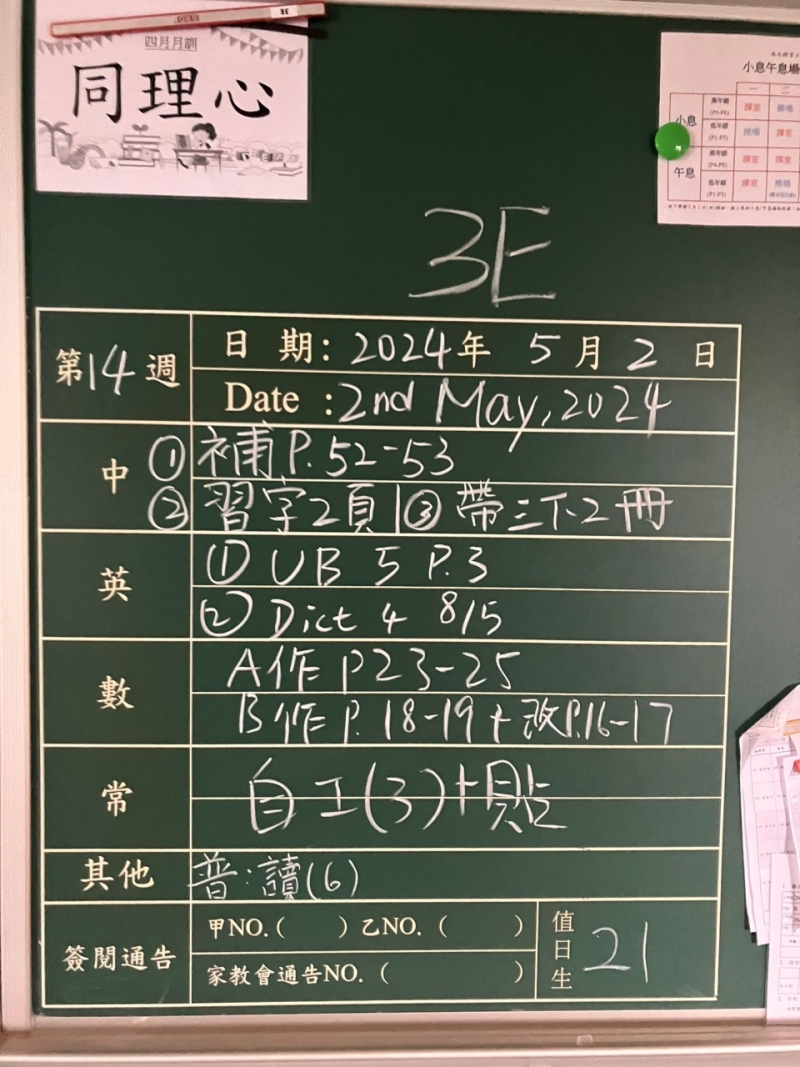 四月月訓
同理心
小息午息場
一 二
小息
高年級 課室 操場
低年級 操場 課室
午息
高年級 課室 課室
低年級 課室 操場
3E
第14週
日 期: 2024年 5月2日
Date : 2nd May, 2024
中 ① 補 P.52-53
② 習字2頁 | ③ 帶三下2冊
英 ① UB 5 P.3
② Dict 4 8/5
數 A作 P23-25
B作 P.18-19 + 改P.16-17
常 自工(3)+貼
其他 普:讀(6)
簽閱通告 甲NO.( ) 乙NO. ( )
家教會通告NO. ( )
值日生 21